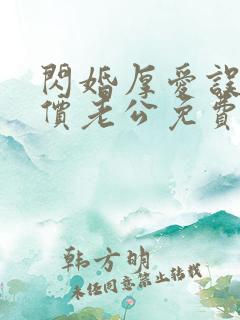 閃婚厚愛誤
價老公免費
韩方明
未经同意禁止转载